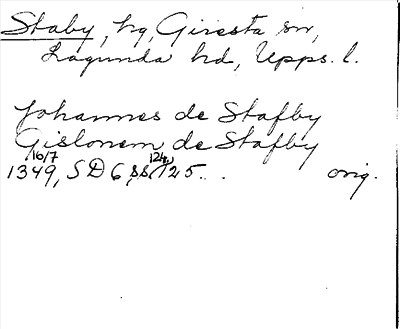 Staby, hg, Giresta sn,
Lagunda hd, Upps. l.
Johannes de Stafby
Gislonem de Stafby
16/7 1349, SD 6, s. 124, 125. . orig.